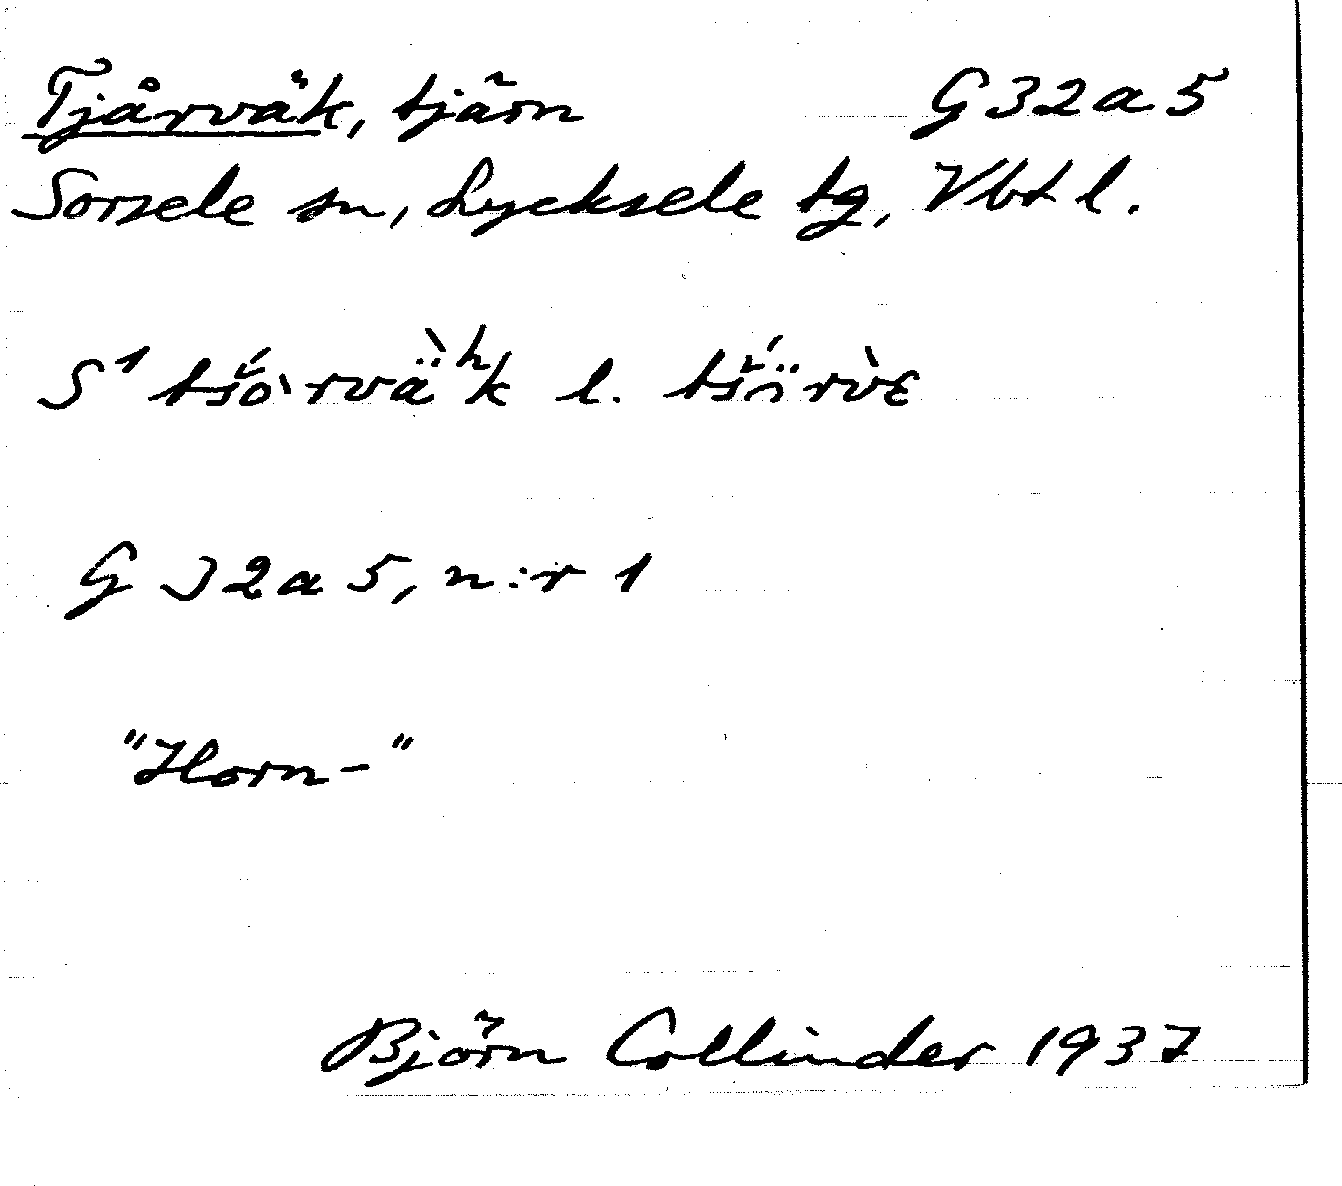 Tjårväk, tjärn G32a5
Sorsele sn, Lycksele tg, Vbt l.
S¹ l.
G 32a5, n:r 1
"Horn-"
Björn Collinder 1937